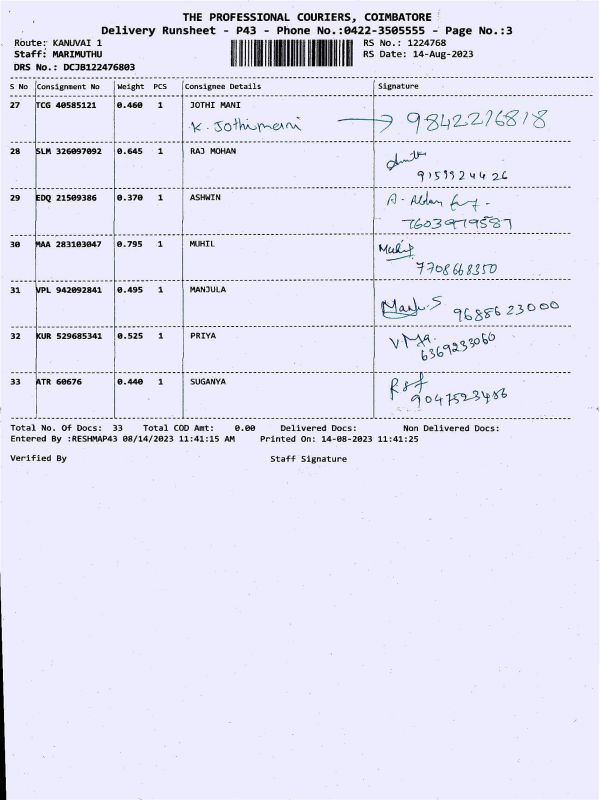 THE PROFESSIONAL COURIERS, COIMBATORE
Delivery Runsheet - P43 - Phone No.:0422-3505555 - Page No.:3
Route: KANUVAI 1 RS No.: 1224768
Staff: MARIMUTHU RS Date: 14-Aug-2023
DRS No.: DCJB122476803
S No Consignment No Weight PCS Consignee Details Signature
27 TCG 40585121 0.460 1 JOTHI MANI
K. Jothimani → 9842276818
28 SLM 326097092 0.645 1 RAJ MOHAN
9159924426
29 EDQ 21509386 0.370 1 ASHWIN
7603979587
30 MAA 283103047 0.795 1 MUHIL
7708668350
31 VPL 942092841 0.495 1 MANJULA
Manju.S 9688623000
32 KUR 529685341 0.525 1 PRIYA
6369233060
33 ATR 60676 0.440 1 SUGANYA
9047523486
Total No. Of Docs: 33 Total COD Amt: 0.00 Delivered Docs: Non Delivered Docs:
Entered By :RESHMAP43 08/14/2023 11:41:15 AM Printed On: 14-08-2023 11:41:25
Verified By Staff Signature